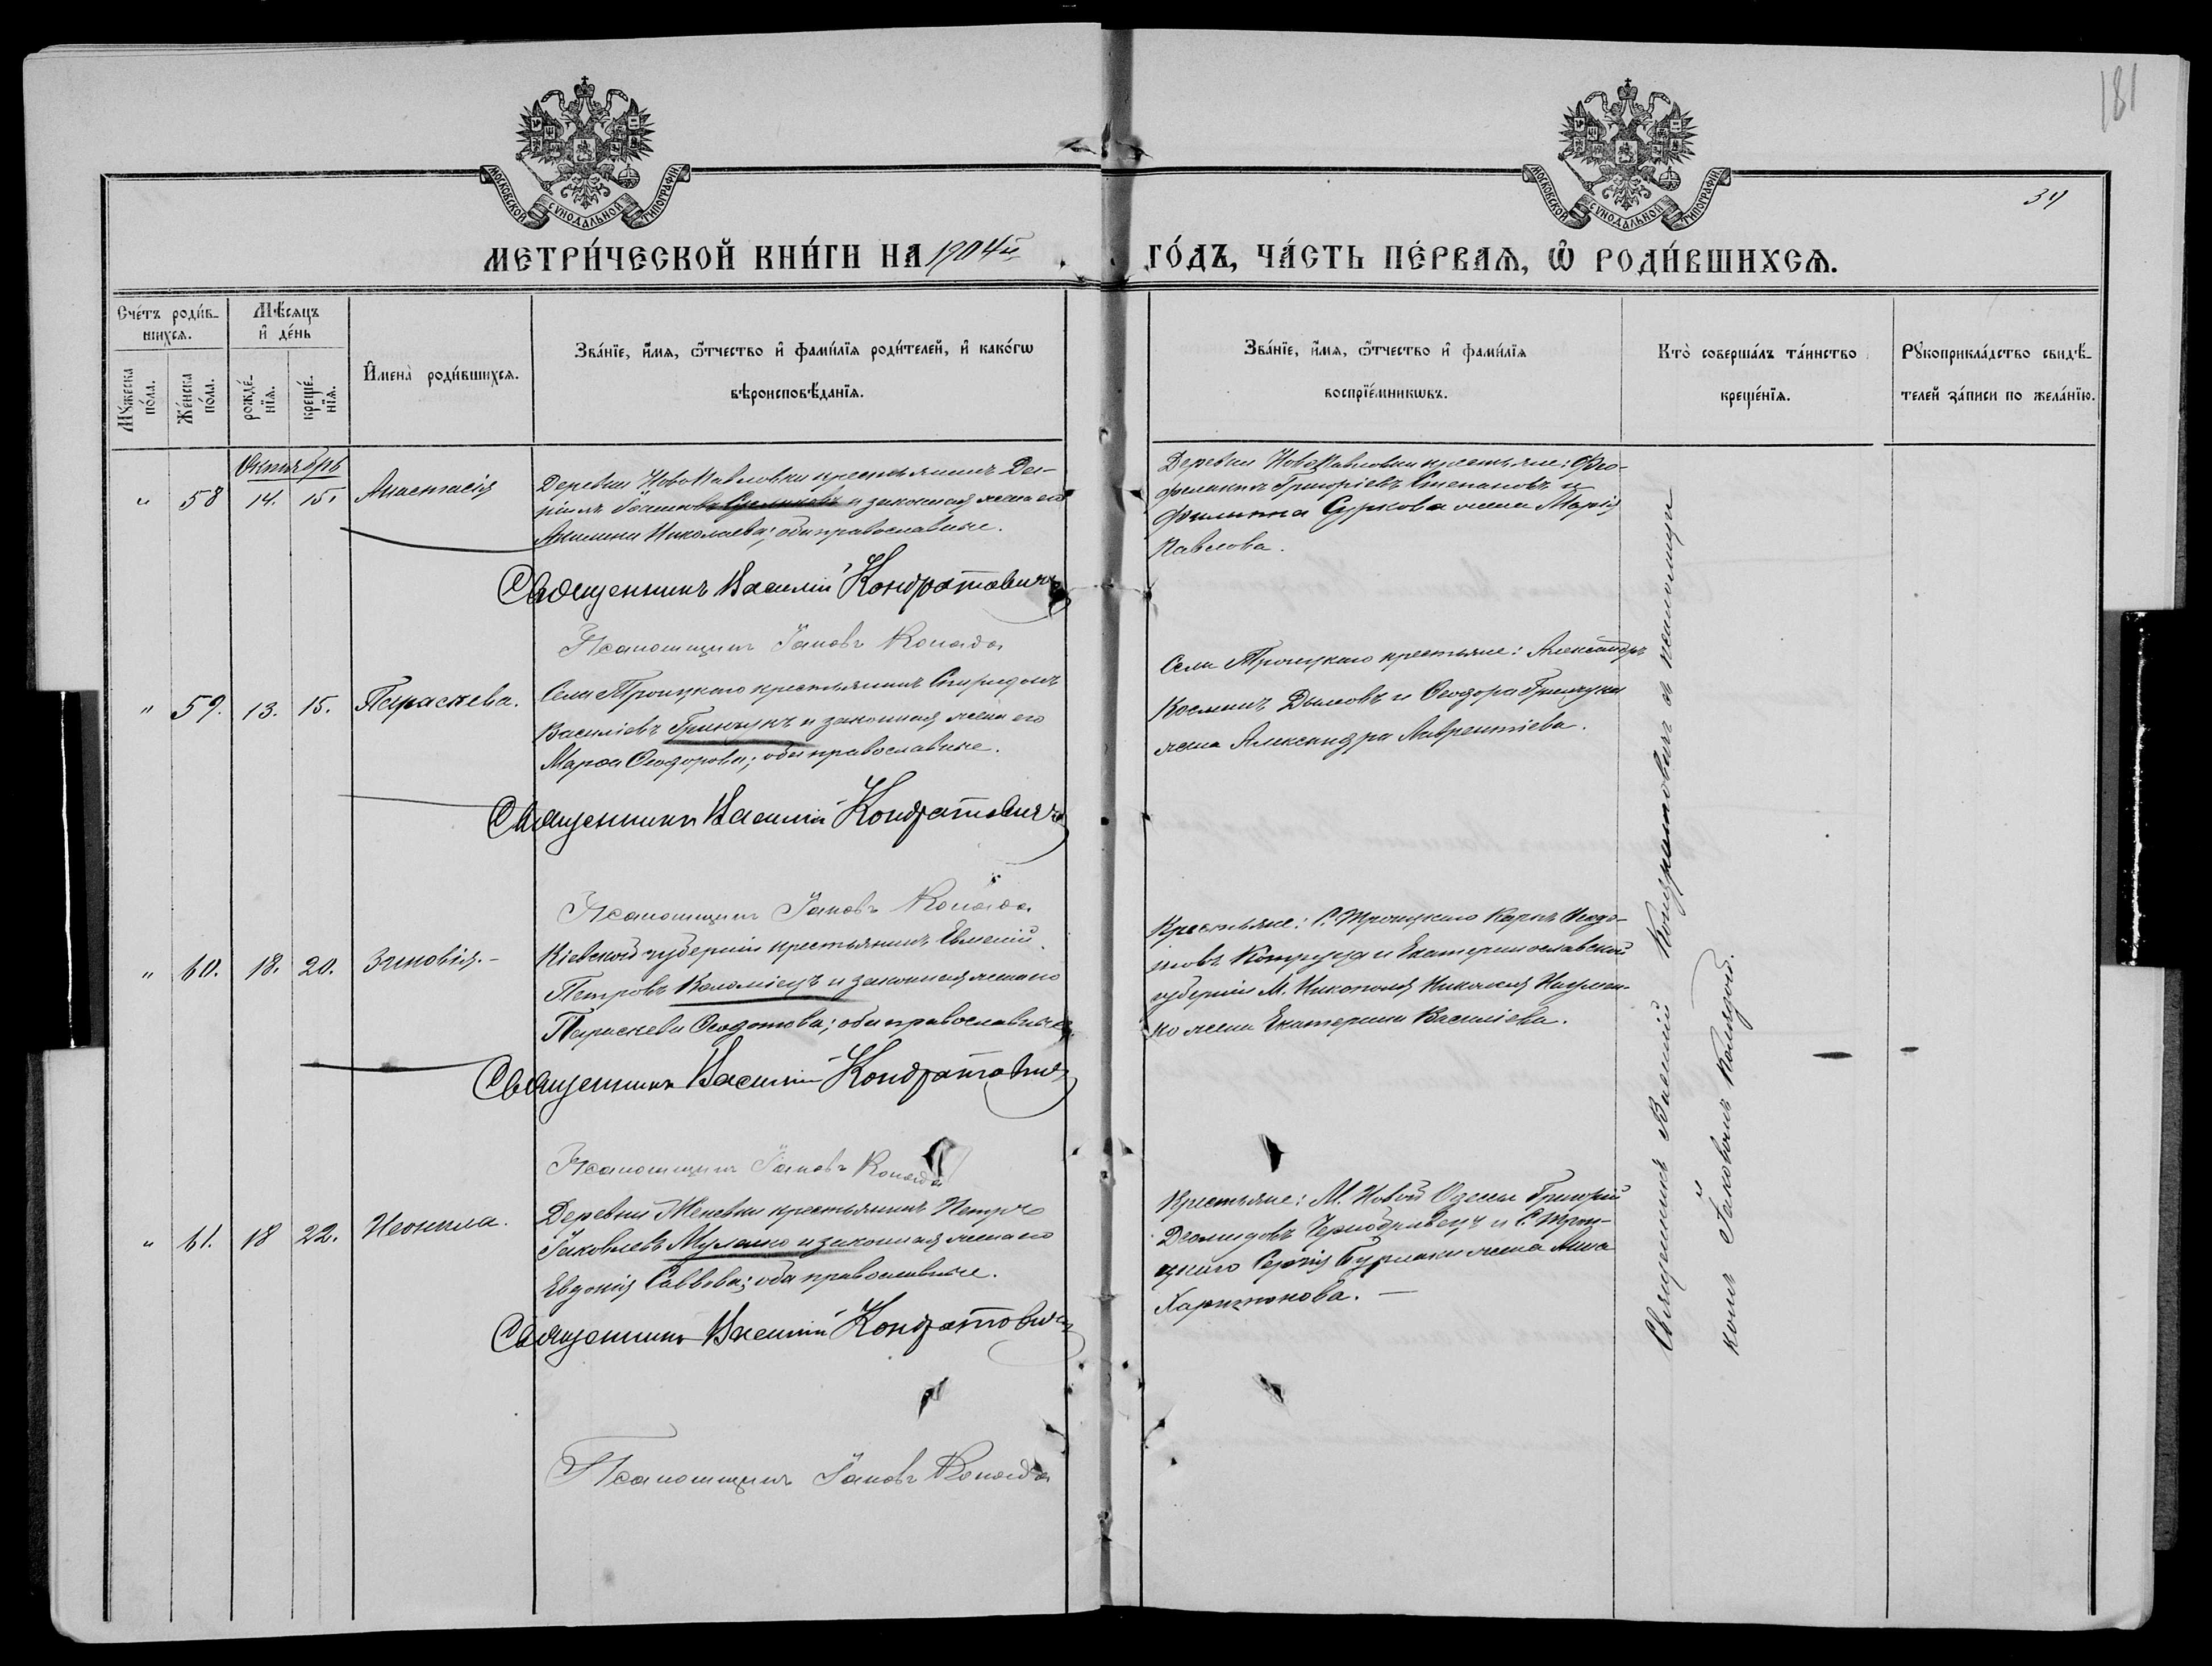 181
34
МОСКОВСКОЙ СѴНОДАЛЬНОЙ ТИПОГРАФІИ
МОСКОВСКОЙ СѴНОДАЛЬНОЙ ТИПОГРАФІИ
МЕТРИ́ЧЕСКОЙ КНИ́ГИ НА 1904й
ГО́ДЪ, ЧА́СТЬ ПЕ́РВАѦ, Ѡ҆ РОДИ́ВШИХСѦ.
Сче́тъ роди́в-
шихсѧ.
Мꙋжеска по́ла.
Же́нска по́ла.
Мѣ́сѧцъ и҆ де́нь
рожде́-
нїѧ.
креще́-
нїѧ.
И҆мена̀ роди́вшихсѧ.
Зва́нїе, и҆́мѧ, ѻ҆́тчество и҆ фами́лїѧ роди́телей, и҆ како́гѡ
вѣроисповѣ́данїѧ.
Зва́нїе, и҆́мѧ, ѻ҆́тчество и҆ фами́лїѧ
воспрїе́мникѡвъ.
Кто̀ соверша́лъ та́инство
креще́нїѧ.
Рꙋкоприкла́дство свидѣ́-
телей за́писи по жела́нїю.
Октябрь
" 58 14. 15. Анастасія
Деревни НовоПавловки крестьянинъ
и законная жена его
Николаева; оба православные.
Священникъ Василій Кондратовичъ
Псаломщикъ Іаковъ Коляда
Деревни НовоПавловки крестьяне: Фео-
Григоріевъ Степановъ и
Филиппа Суркова жена Марія
Павлова.
" 59. 13. 15. Параскева.
Села Троицкаго крестьянинъ Спиридонъ
Василіевъ Гринчукъ и законная жена его
Марѳа Ѳеодорова; оба православные.
Священникъ Василій Кондратовичъ
Псаломщикъ Іаковъ Коляда
Села Троицкаго крестьяне: Александръ
Косминъ Дымовъ и Ѳеодора Гринчука
жена Александра Лаврентіева.
" 60. 18. 20. Зиновія.-
Кіевской губерніи крестьянинъ Евменій
Петровъ Коломіецъ и законная жена его
Параскева Ѳеодотова; оба православные.
Священникъ Василій Кондратовичъ
Псаломщикъ Іаковъ Коляда
Крестьяне: С. Троицкаго Карпъ
и Екатеринославской
губерніи М. Никополя Николая Наумен-
ко жена Екатерина Василіева.
" 61. 18 22. Неонила.
Деревни крестьянинъ Петръ
Іаковлевъ и законная жена его
Евдокія Саввова; оба православные.
Священникъ Василій Кондратовичъ
Псаломщикъ Іаковъ Коляда
Крестьяне: М. Новой Одессы Григорій
Діомидовъ Чернобривецъ и С. Трои-
цкаго Сергія Бурлаки жена Анна
Харитонова. —
Священникъ Василій Кондратовичъ съ псаломщи-
комъ Іаковомъ Колядой.